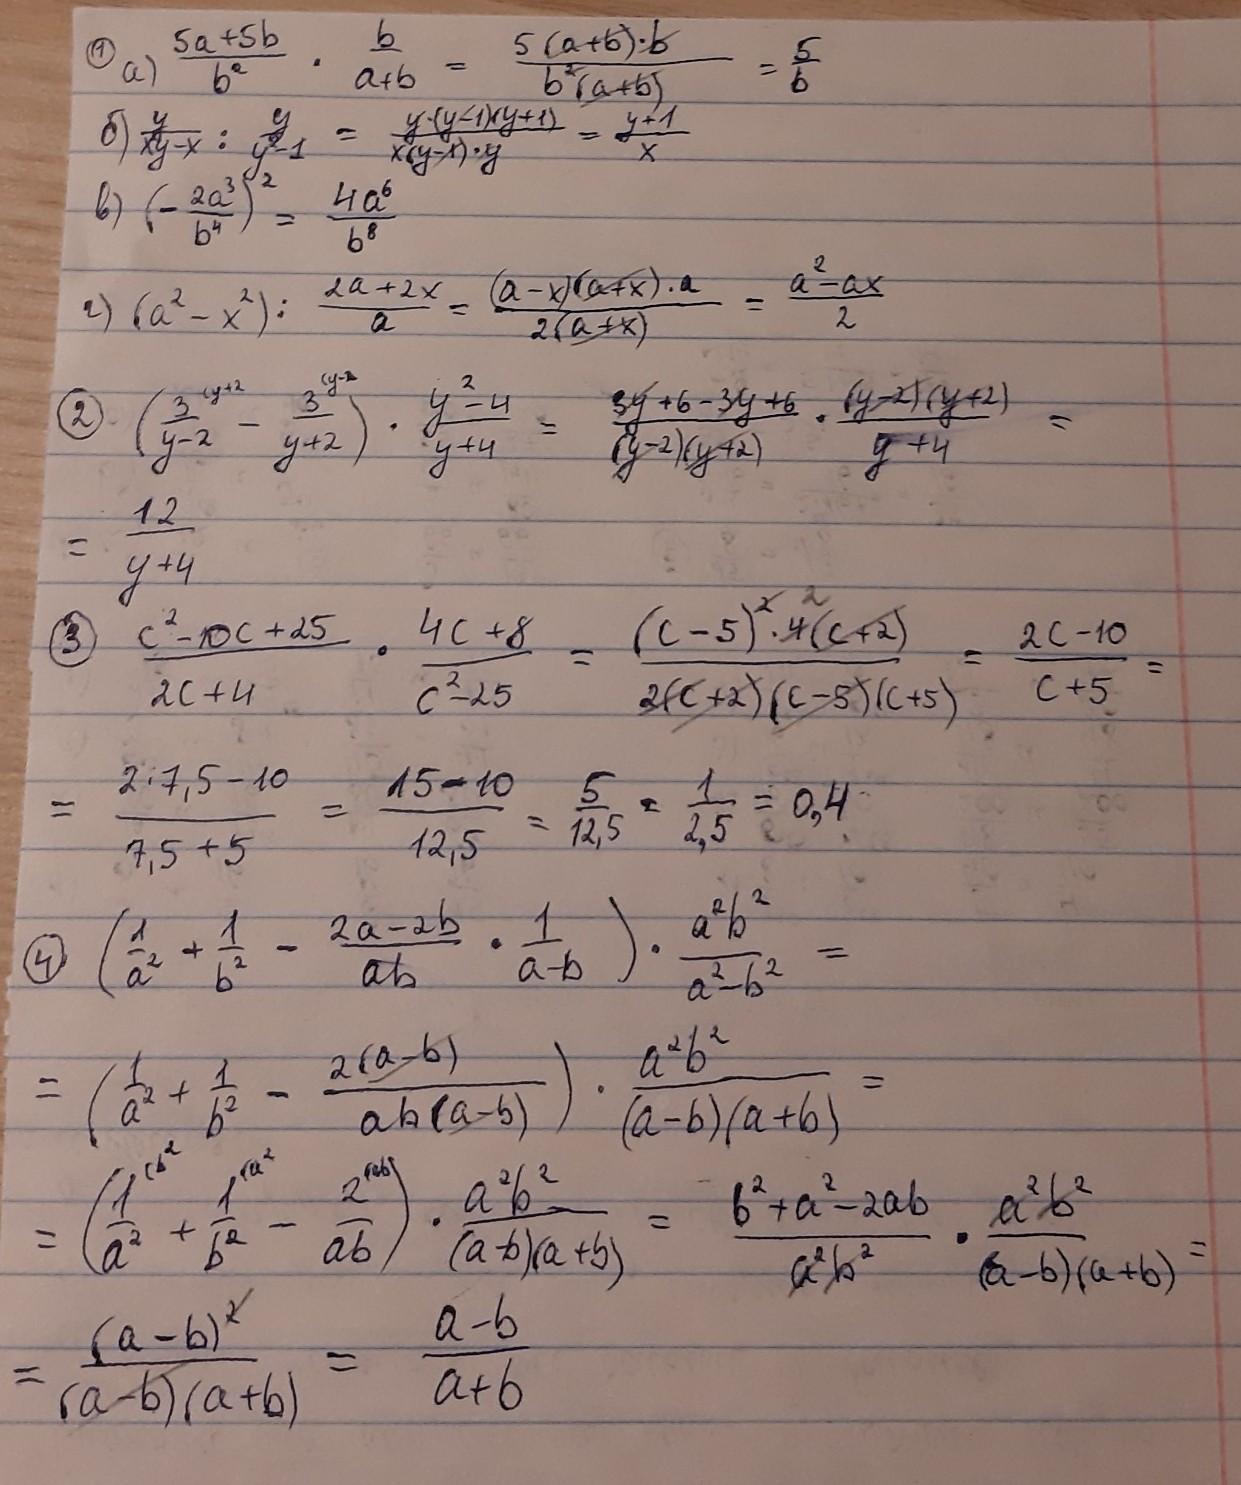 ① а) (5a+5b)/b² · b/(a+b) = (5(a+b)·b)/(b²(a+b)) = 5/b
б) y/(xy-x) : y/(y²-1) = (y·(y-1)(y+1))/(x(y-1)·y) = (y+1)/x
в) (-2a³/b⁴)² = 4a⁶/b⁸
г) (a² - x²) : (2a+2x)/a = ((a-x)(a+x)·a)/(2(a+x)) = (a²-ax)/2
② (3/(y-2) ⁽ʸ⁺² - 3/(y+2) ⁽ʸ⁻²) · (y²-4)/(y+4) = (3y+6-3y+6)/((y-2)(y+2)) · ((y-2)(y+2))/(y+4) =
= 12/(y+4)
③ (c²-10c+25)/(2c+4) · (4c+8)/(c²-25) = ((c-5)²·4(c+2))/(2(c+2)(c-5)(c+5)) = (2c-10)/(c+5) =
= (2·7,5-10)/(7,5+5) = (15-10)/12,5 = 5/12,5 = 1/2,5 = 0,4
④ (1/a² + 1/b² - (2a-2b)/ab · 1/(a-b)) · a²b²/(a²-b²) =
= (1/a² + 1/b² - 2(a-b)/(ab(a-b))) · a²b²/((a-b)(a+b)) =
= (1/a² ⁽ᵇ² + 1/b² ⁽ᵃ² - 2/ab ⁽ᵃᵇ⁾) · a²b²/((a-b)(a+b)) = (b²+a²-2ab)/(a²b²) · a²b²/((a-b)(a+b)) =
= (a-b)²/((a-b)(a+b)) = (a-b)/(a+b)